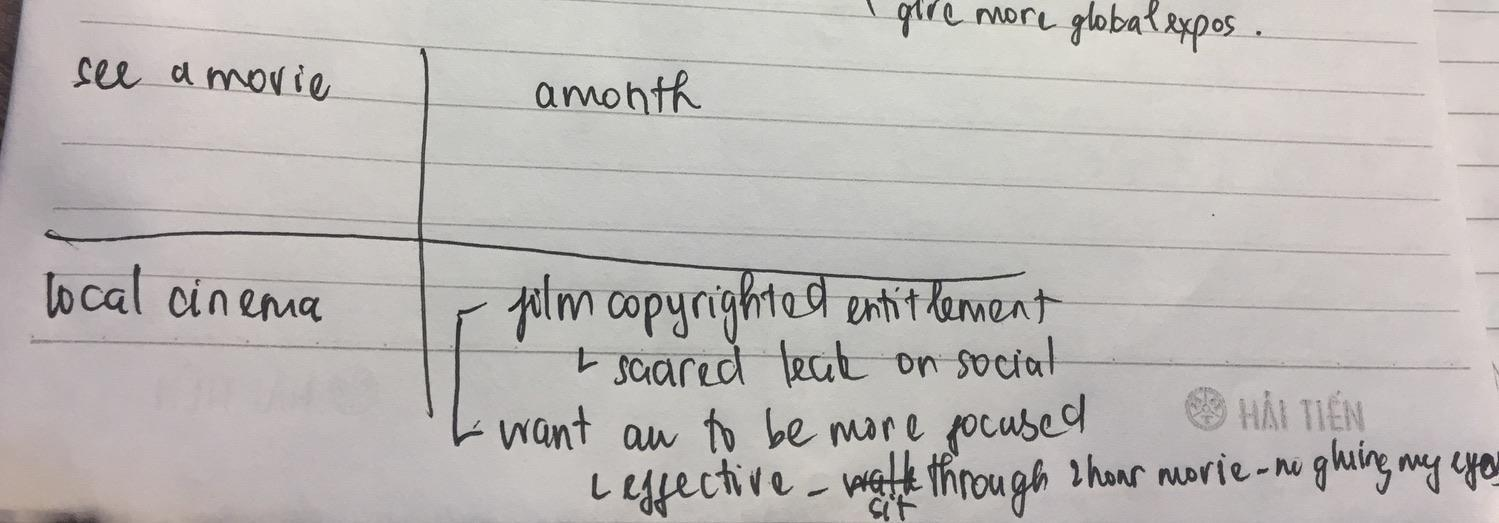 give more global expos.
see a movie
a month
local cinema
film copyrighted entitlement
scared leak on social
want au to be more focused
HẢI TIẾN
effective - walk sit through 2 hour movie - no gluing my eyes